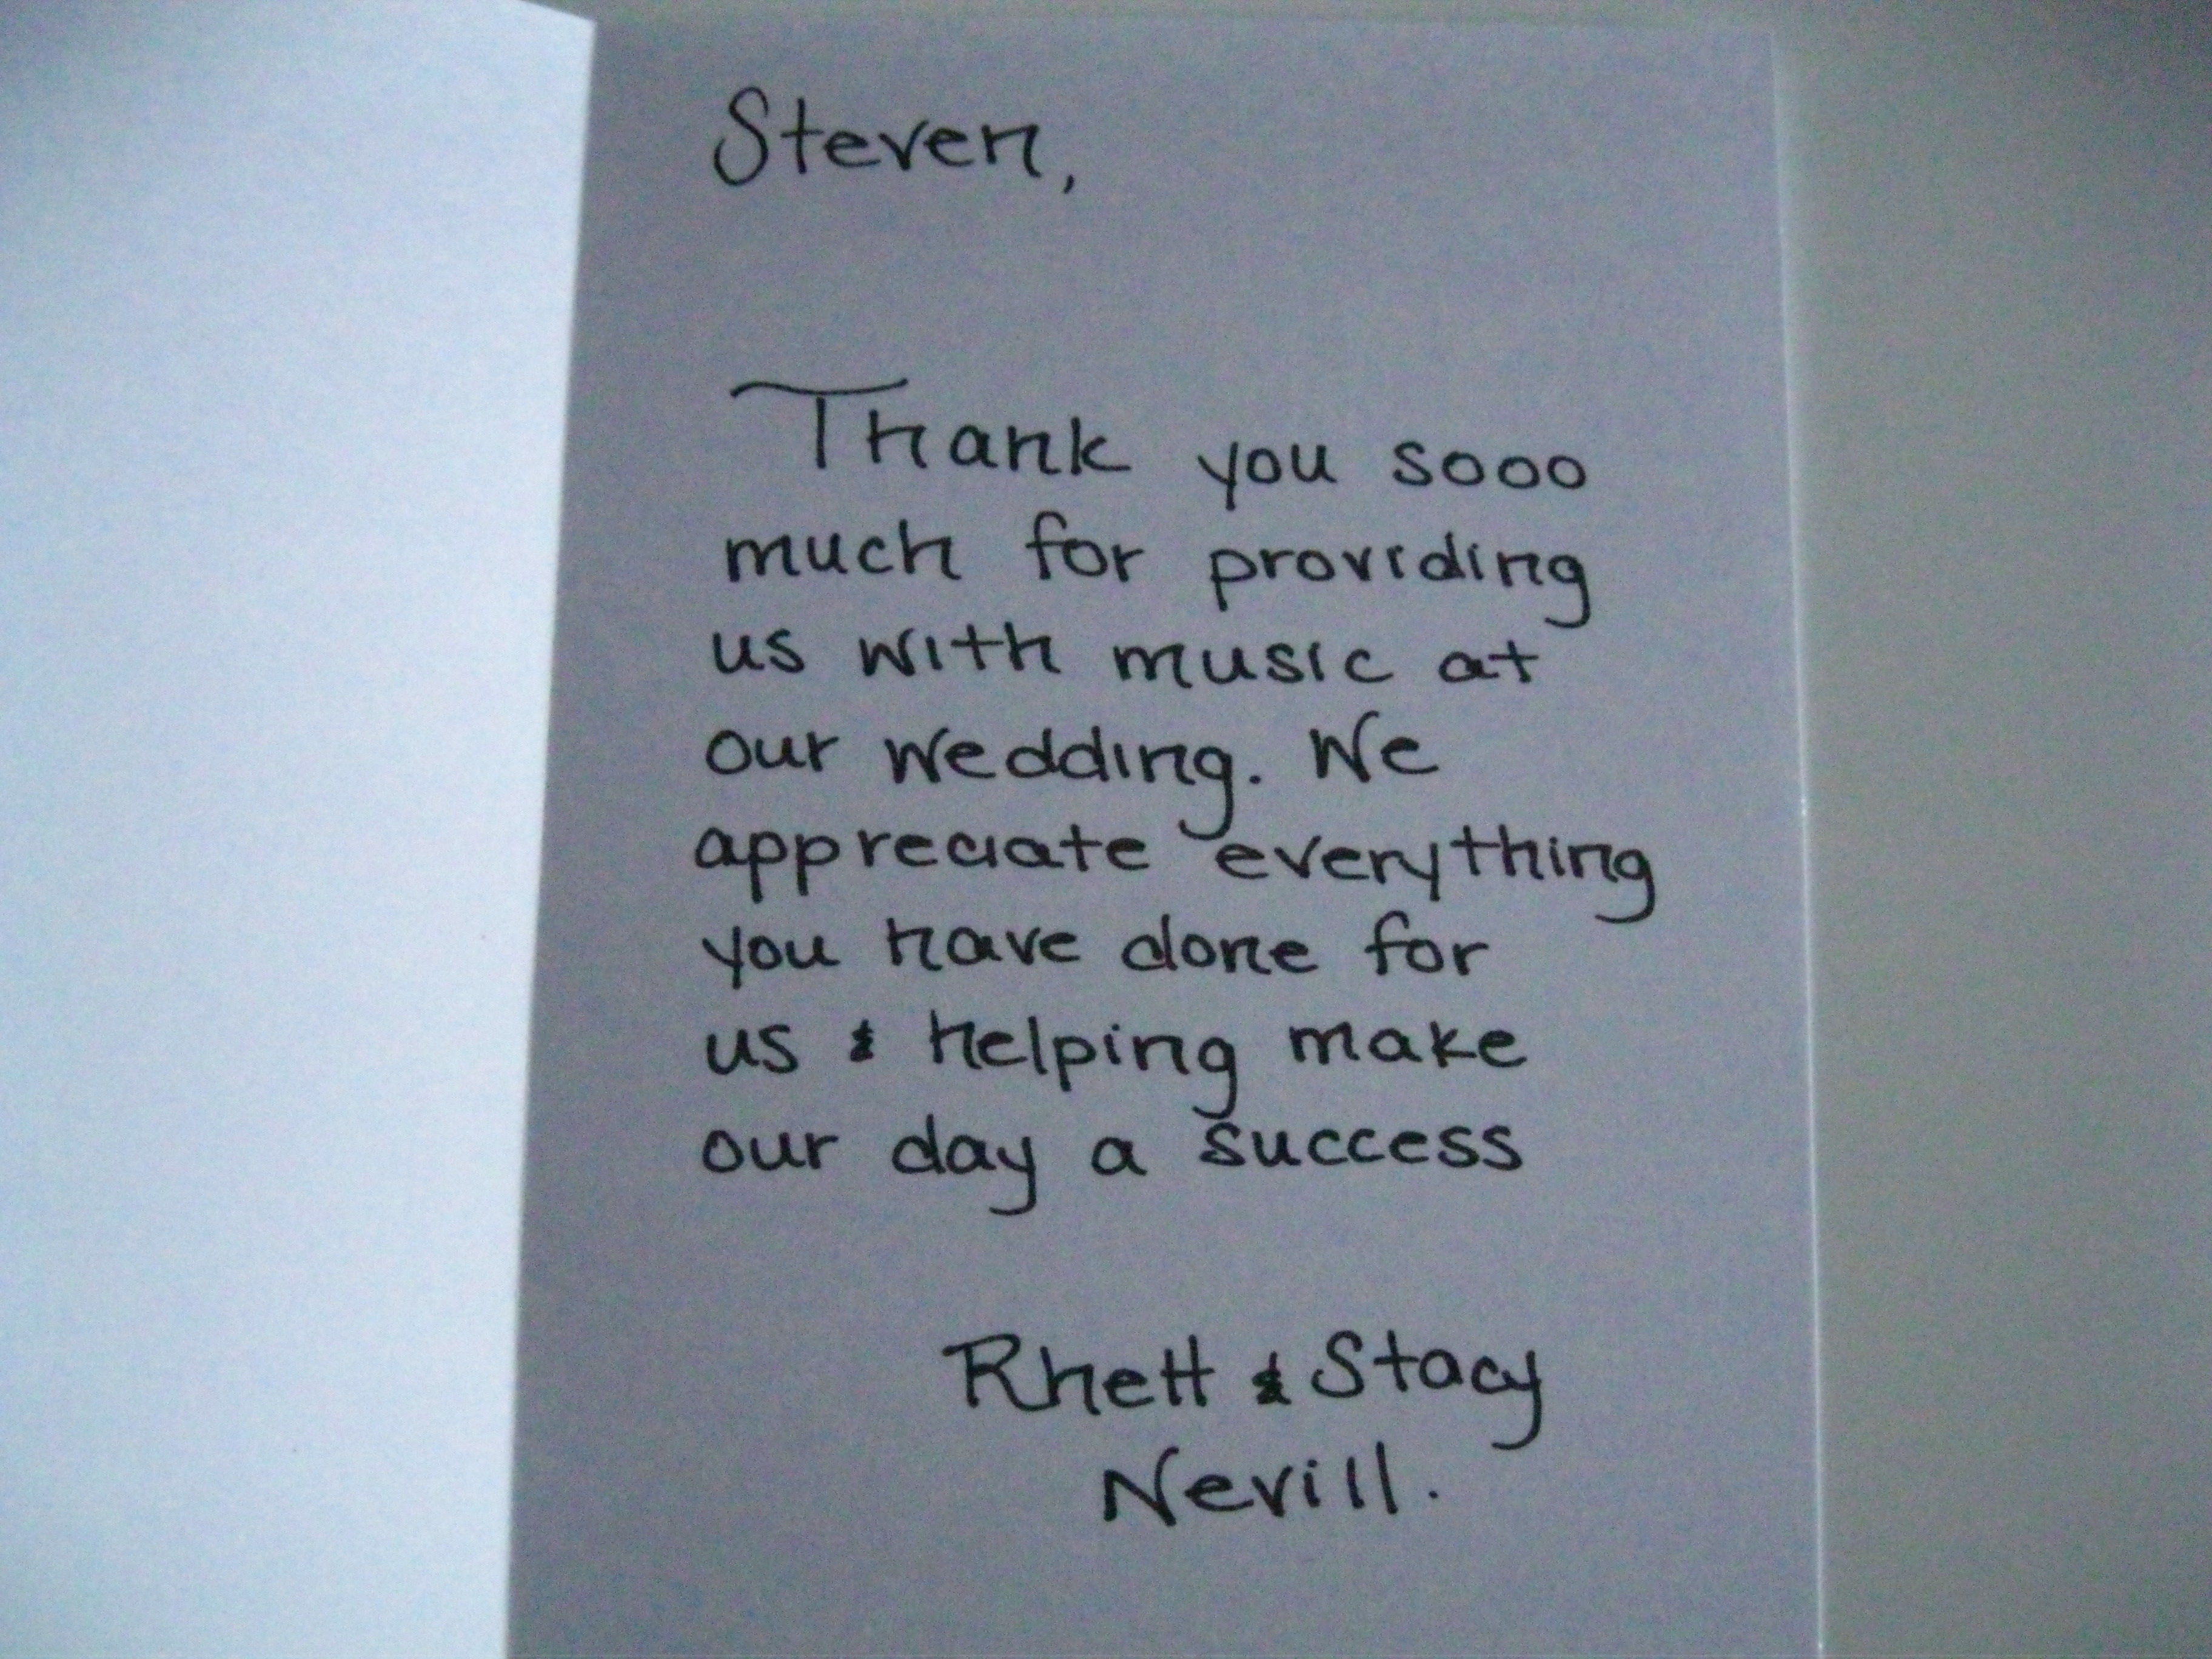 Steven,
Thank you sooo
much for providing
us with music at
our wedding. We
appreciate everything
you have done for
us & helping make
our day a success
Rhett & Stacy
Nevill.